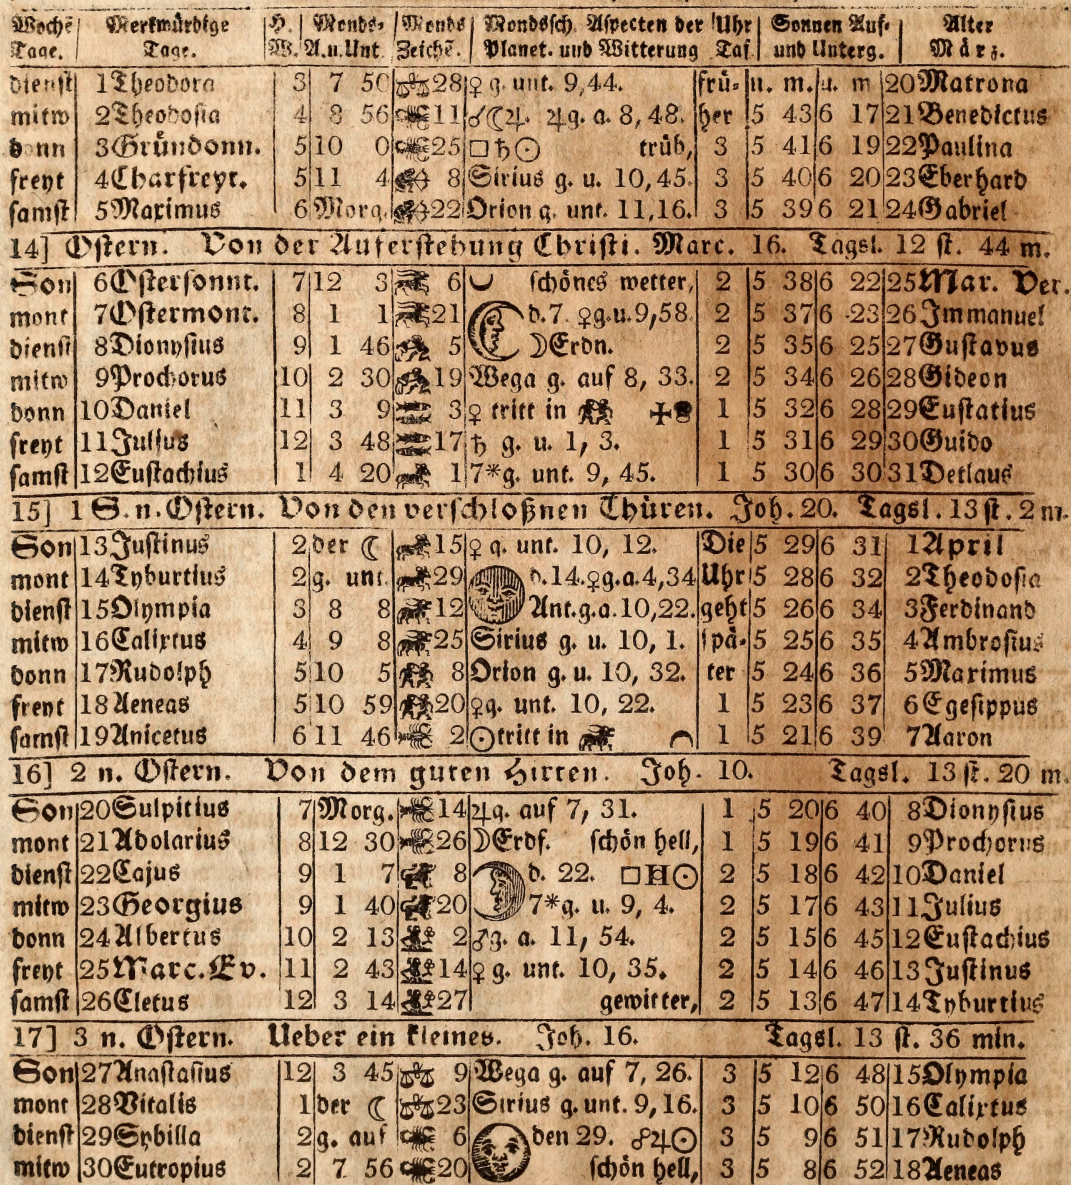 Woche Merkwürdige H. Monds- Monds Mondssch. Aspecten der Uhr Sonnen Auf- Alter
Tage. Tage. W. A.u.Unt Zeichē. Planet. und Witterung Taf. und Unterg. März.
dienst 1 Theodora 3 7 50 ♎ 28 ♀ g. unt. 9,44. frü- u. m. u. m 20 Matrona
mitw 2 Theodosia 4 8 56 ♏ 11 ☌☾♃. ♃g. a. 8, 48. her 5 43 6 17 21 Benedictus
donn 3 Gründonn. 5 10 0 ♏ 25 □♄☉ trüb, 3 5 41 6 19 22 Paulina
freyt 4 Charfreyt. 5 11 4 ♐ 8 Sirius g. u. 10,45. 3 5 40 6 20 23 Eberhard
samst 5 Maximus 6 Morg. ♐ 22 Orion g. unt. 11,16. 3 5 39 6 21 24 Gabriel
14] Ostern. Von der Auferstehung Christi. Marc. 16. Tagsl. 12 st. 44 m.
Son 6 Ostersonnt. 7 12 3 ♑ 6 schönes wetter, 2 5 38 6 22 25 Mar. Ver.
mont 7 Ostermont. 8 1 1 ♑ 21 d.7. ♀g.u.9,58. 2 5 37 6 23 26 Immanuel
dienst 8 Dionysius 9 1 46 ♒ 5 ☽Erdn. 2 5 35 6 25 27 Gustavus
mitw 9 Prochorus 10 2 30 ♒ 19 Wega g. auf 8, 33. 2 5 34 6 26 28 Gideon
donn 10 Daniel 11 3 9 ♓ 3 ♀ tritt in ♊ 1 5 32 6 28 29 Eustatius
freyt 11 Julius 12 3 48 ♓ 17 ♄ g. u. 1, 3. 1 5 31 6 29 30 Guido
samst 12 Eustachius 1 4 20 ♈ 1 7*g. unt. 9, 45. 1 5 30 6 30 31 Detlaus
15] 1 S. n. Ostern. Von den verschloßnen Thüren. Joh. 20. Tagsl. 13 st. 2 m.
Son 13 Justinus 2 der ☾ ♈ 15 ♀ g. unt. 10, 12. Die 5 29 6 31 1 April
mont 14 Tyburtius 2 g. unt. ♈ 29 d.14.♀g.a.4,34 Uhr 5 28 6 32 2 Theodosia
dienst 15 Olympia 3 8 8 ♉ 12 Ant.g.a.10,22. geht 5 26 6 34 3 Ferdinand
mitw 16 Calixtus 4 9 8 ♉ 25 Sirius g. u. 10, 1. spä- 5 25 6 35 4 Ambrosius
donn 17 Rudolph 5 10 5 ♊ 8 Orion g. u. 10, 32. ter 5 24 6 36 5 Maximus
freyt 18 Aeneas 5 10 59 ♊ 20 ♀g. unt. 10, 22. 1 5 23 6 37 6 Egesippus
samst 19 Anicetus 6 11 46 ♋ 2 ☉tritt in ♉ 1 5 21 6 39 7 Aaron
16] 2 n. Ostern. Von dem guten Hirten. Joh. 10. Tagsl. 13 st. 20 m.
Son 20 Sulpitius 7 Morg. ♋ 14 ♃g. auf 7, 31. 1 5 20 6 40 8 Dionysius
mont 21 Adolarius 8 12 30 ♋ 26 ☽Erdf. schön hell, 1 5 19 6 41 9 Prochorus
dienst 22 Cajus 9 1 7 ♌ 8 d. 22. □♅☉ 2 5 18 6 42 10 Daniel
mitw 23 Georgius 9 1 40 ♌ 20 7*g. u. 9, 4. 2 5 17 6 43 11 Julius
donn 24 Albertus 10 2 13 ♍ 2 ♂g. a. 11, 54. 2 5 15 6 45 12 Eustachius
freyt 25 Marc. Ev. 11 2 43 ♍ 14 ♀ g. unt. 10, 35. 2 5 14 6 46 13 Justinus
samst 26 Cletus 12 3 14 ♍ 27 gewitter, 2 5 13 6 47 14 Tyburtius
17] 3 n. Ostern. Ueber ein kleines. Joh. 16. Tagsl. 13 st. 36 min.
Son 27 Anastasius 12 3 45 ♎ 9 Wega g. auf 7, 26. 3 5 12 6 48 15 Olympia
mont 28 Vitalis 1 der ☾ ♎ 23 Sirius g. unt. 9, 16. 3 5 10 6 50 16 Calixtus
dienst 29 Sybilla 2 g. auf ♏ 6 den 29. ☍♃☉ 3 5 9 6 51 17 Rudolph
mitw 30 Eutropius 2 7 56 ♏ 20 schön hell, 3 5 8 6 52 18 Aeneas